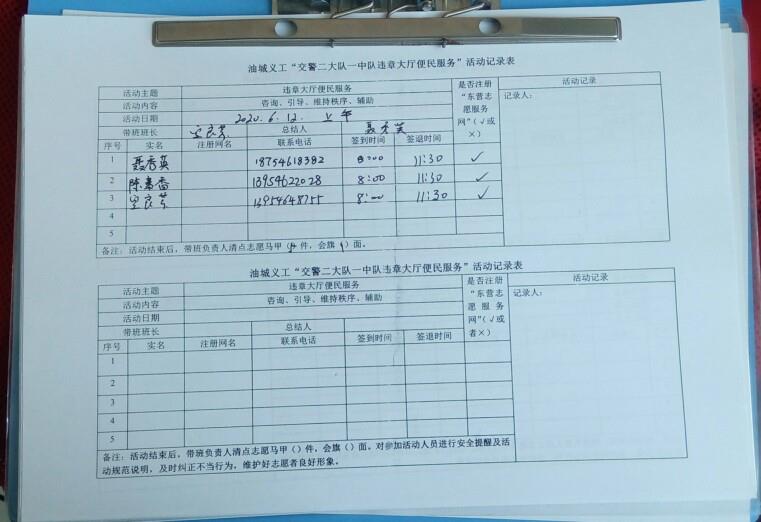 油城义工“交警二大队一中队违章大厅便民服务”活动记录表
活动主题 违章大厅便民服务 是否注册“东营志愿服务网”(√或×) 活动记录
活动内容 咨询、引导、维持秩序、辅助 记录人:
活动日期 2020.6.12. 上午
带班班长 总结人
序号 实名 注册网名 联系电话 签到时间 签退时间
1 聂秀英 18754618382 8:00 11:30 ✓
2 陈 香 13954622028 8:00 11:30 ✓
3 13954648755 8:00 11:30 ✓
4
5
备注:活动结束后,带班负责人清点志愿马甲( )件,会旗( )面。
油城义工“交警二大队一中队违章大厅便民服务”活动记录表
活动主题 违章大厅便民服务 是否注册“东营志愿服务网”(√或者×) 活动记录
活动内容 咨询、引导、维持秩序、辅助 记录人:
活动日期
带班班长 总结人
序号 实名 注册网名 联系电话 签到时间 签退时间
1
2
3
4
5
备注:活动结束后,带班负责人清点志愿马甲()件,会旗()面。对参加活动人员进行安全提醒及活
动规范说明,及时纠正不当行为,维护好志愿者良好形象。